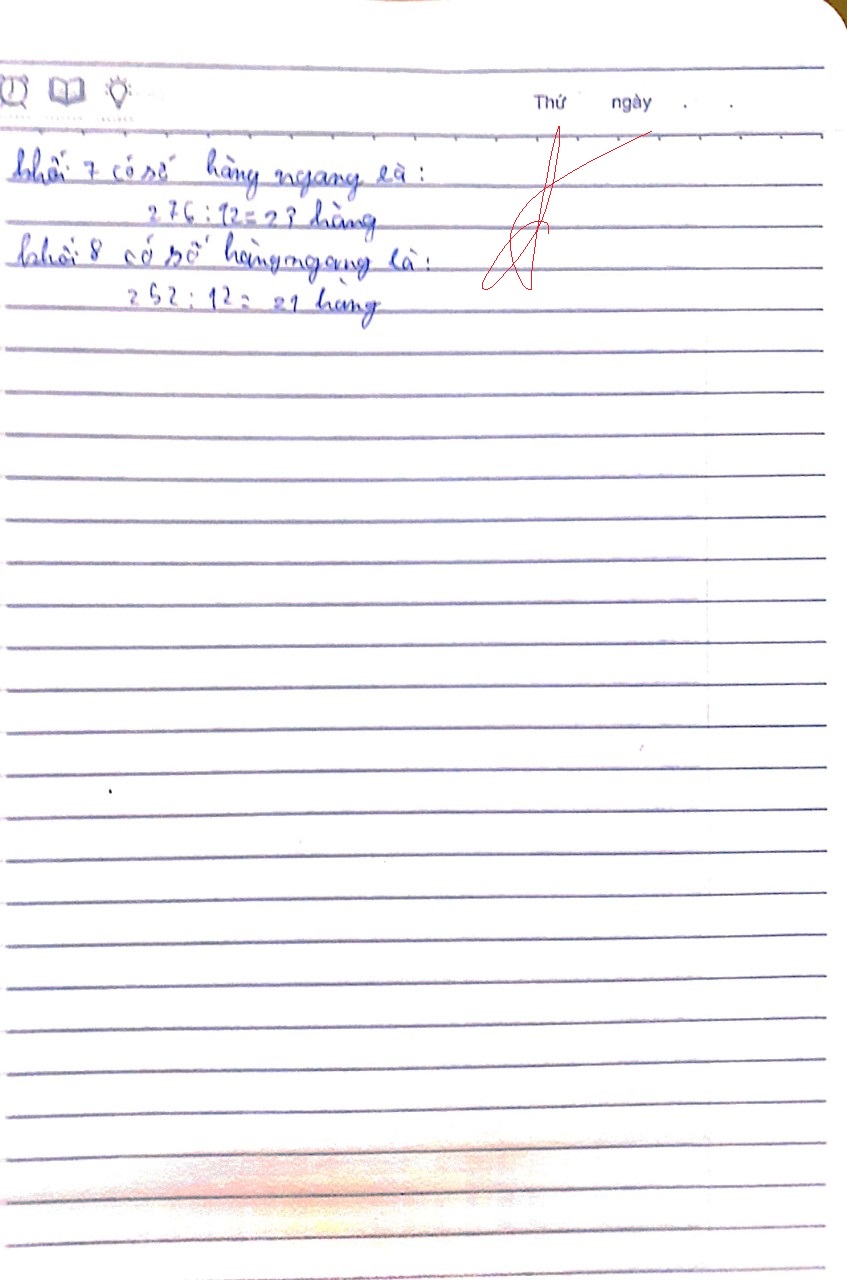 Thứ ngày . .
khối 7 có số hàng ngang là :
276 : 12 = 23 hàng
khối 8 có số hàng ngang là :
252 : 12 = 21 hàng